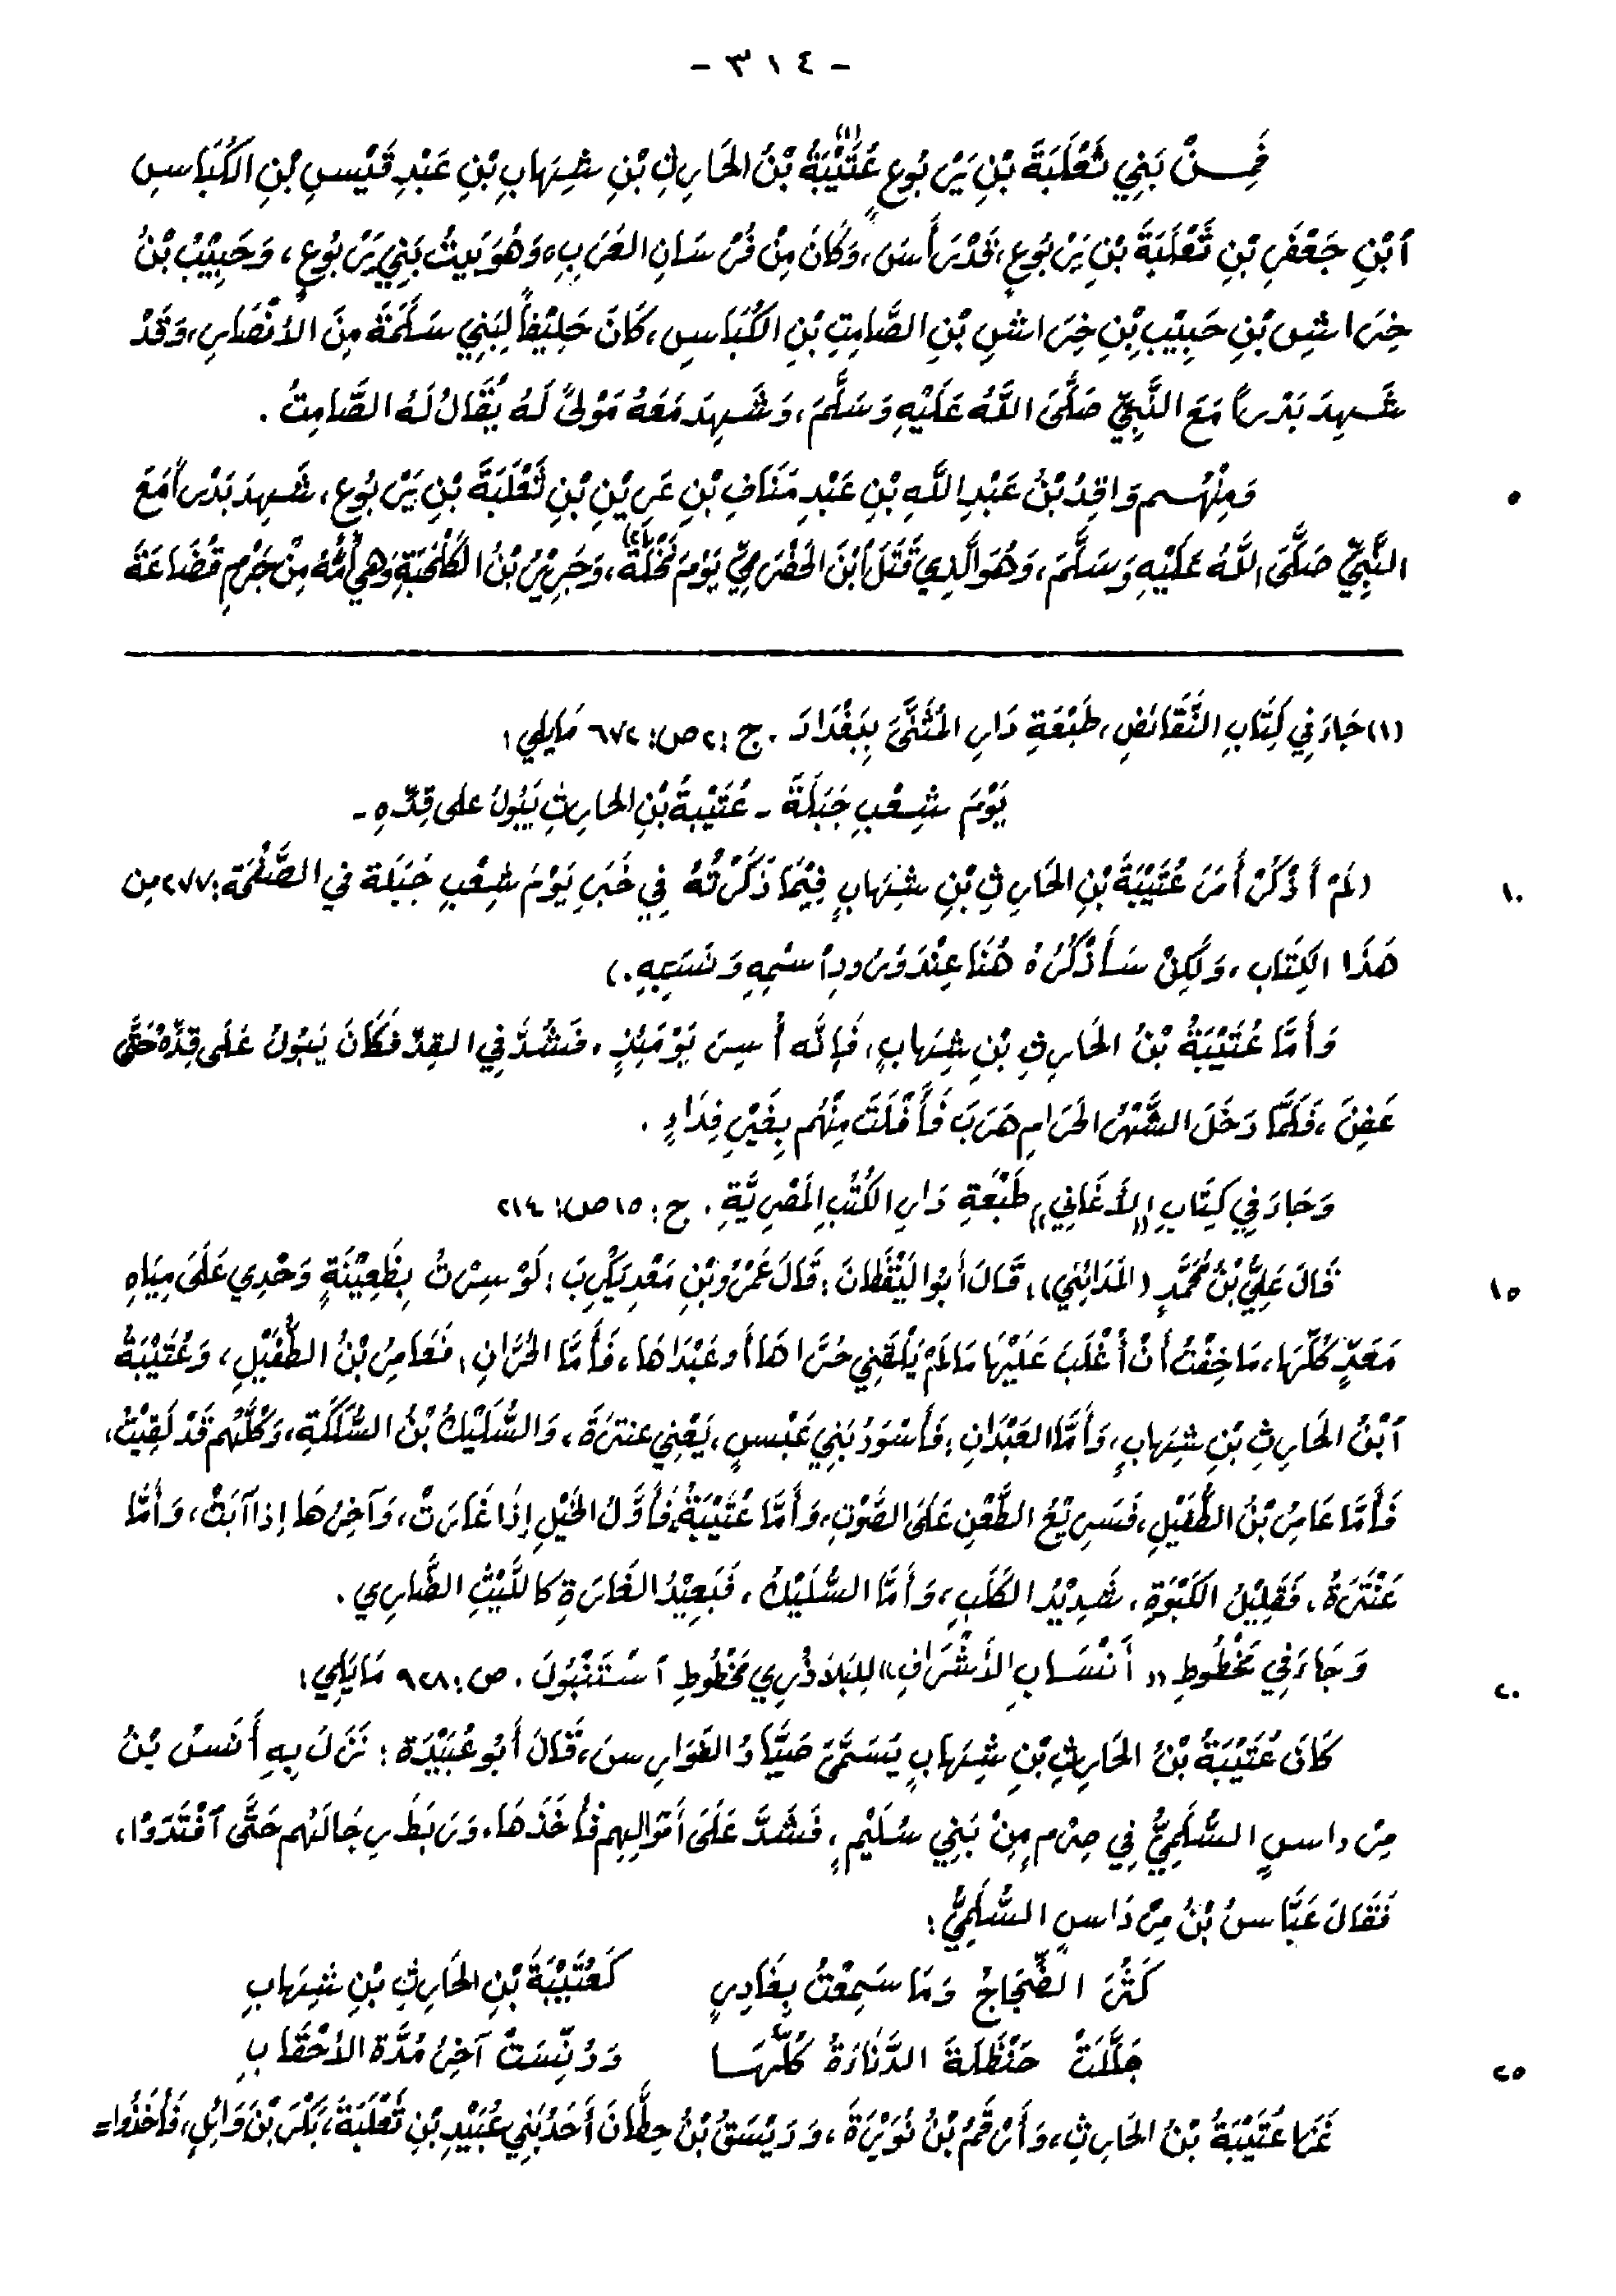 - ٣١٤ -
فَمِنْ بَنِي ثَعْلَبَةَ بْنِ يَرْبُوعٍ عُتَيْبَةُ (١) بْنُ الحَارِثِ بْنِ شِهَابِ بْنِ عَبْدِ قَيْسِ بْنِ الكُبَاسِ
ٱبْنِ جَعْفَرِ بْنِ ثَعْلَبَةَ بْنِ يَرْبُوعٍ، قَدْ رَأَسَ، وَكَانَ مِنْ فُرْسَانِ العَرَبِ، وَهُوَ بَيْتُ بَنِي يَرْبُوعٍ، وَحَبِيْبُ بْنُ
خِرَاشِ بْنِ حَبِيْبِ بْنِ خِرَاشِ بْنِ الصَّامِتِ بْنِ الكُبَاسِ، كَانَ حَلِيْفاً لِبَنِي سَلَمَةَ مِنَ الأَنْصَارِ، وَقَدْ
شَهِدَ بَدْراً مَعَ النَّبِيِّ صَلَّى اللَّهُ عَلَيْهِ وَسَلَّمَ، وَشَهِدَ مَعَهُ مَوْلىً لَهُ يُقَالُ لَهُ الصَّامِتُ .
٥ وَمِنْهُم وَاقِدُ بْنُ عَبْدِ اللَّهِ بْنِ عَبْدِ مَنَافِ بْنِ عَرِيْنِ بْنِ ثَعْلَبَةَ بْنِ يَرْبُوعٍ، شَهِدَ بَدْراً مَعَ
النَّبِيِّ صَلَّى اللَّهُ عَلَيْهِ وَسَلَّمَ، وَهُوَ الَّذِي قَتَلَ ابْنَ الحَضْرَمِيِّ يَوْمَ نَخْلَةَ (٢)، وَجَرِيْرُ بْنُ الكَلْحَبَةِ وَهِيَ أُمُّهُ مِنْ جَرْمِ قُضَاعَةَ
(١) جَاءَ فِي كِتَابِ النَّقَائضِ، طَبْعَةِ دَارِ المُثَنَّى بِبَغْدَادَ . ج : ٢ ص: ٦٧٢ مَايَلِي:
يَوْمَ شِعْبِ جَبَلَةَ - عُتَيْبَةُ بْنِ الحارِثِ يَبُولُ على قِدِّهِ -
١٠ (لَمْ أَذْكُرْ أَمَرَ عُتَيْبَةَ بْنِ الحَارِثِ بْنِ شِهَابٍ فِيْمَا ذَكَرْتُهُ فِي خَبَرِ يَوْمَ شِعْبِ جَبَلَة في الصَّفْحَة: ٢٧٧ مِن
هَذَا الكِتَابِ، وَلَكِنْ سَأَذْكُرُهُ هُنَا عِنْدَ وُرُودِ اْسْمِهِ وَنَسَبِهِ.)
وَأَمَّا عُتَيْبَةُ بْنُ الحَارِثِ بْنِ شِهَابٍ، فَإِنَّه أُسِرَ يَوْمَئِذٍ، فَشُدَّ فِي القِدِّ فَكَانَ يَبُولُ عَلَى قِدِّهْ حَتَّى
عَفِنَ، فَلَمَّا دَخَلَ الشَّهْرُ الحَرَامِ هَرَبَ فَأَفْلَتَ مِنْهُم بِغَيْرِ فِدَاءٍ .
وَجَاءَ فِي كِتَابِ «الأَغَانِي» طَبْعَةِ دَارِ الكُتُبِ المَصْرِيَّةِ . ج: ١٥ ص: ٢١٤
١٥ قَالَ عَلِيُّ بْنُ مُحَمَّدٍ (المَدَائِنِي): قَالَ أَبُو اليَقْظَانَ: قَالَ عَمْرُو بْنِ مَعْدِيكَرِبَ: لَوْ سِرْتُ بِظَعِيْنَةٍ وَحْدِي عَلَى مِيَاهِ
مَعَدٍّ كُلِّهَا، مَا خِفْتُ أَنْ أُغْلَبَ عَلَيْهَا مَا لَمْ يَلْقَنِي حُرَّاهَا أو عَبْدَاهَا، فَأَمَّا الحُرَّانِ: فَعَامِرُ بْنُ الطُّفَيْلِ، وَعُتَيْبَةُ
ٱبْنُ الحَارِثِ بْنِ شِهابٍ، وَأَمَّا العَبْدَانِ: فَأَسْوَدُ بَنِي عَبْسٍ، يَعْنِي عنترةَ، وَالسُّلَيْكُ بْنُ السُّلَكَةِ، وَكُلَّهُم قَدْ لَقِيْتُ،
فَأَمَّا عَامِرُ بْنُ الطُّفَيْلِ، فَسَرِيْعُ الطَّعْنِ عَلَى الصَّوْتِ، وَأَمَّا عُتَيْبَةُ، فَأَوَّلُ الخَيْلِ إِذَا غَارَتْ، وَآخِرُهَا إِذا آبَتْ، وَأَمَّا
عَنْتَرَةُ، فَقَلِيْلُ الكَبْوَةِ، شَدِيْدُ الكَلَبِ، وَأَمَّا السُّلَيْكُ، فَبَعِيْدُ الغَارَةِ كَاللَّيْثِ الضَّارِي .
٢٠ وَجَاءَ فِي مَخْطُوطِ «أَنْسَابِ الأَشْرَافِ» لِلبَلاَذُرِي مَخْطُوطِ ٱسْتَنْبُولَ . ص: ٩٢٨ مَا يَلِي:
كَانَ عُتَيْبَةُ بْنُ الحَارِثِ بْنِ شِهَابٍ يَسَمَّى صَيَّادُ الفَوَارِسِ، قَالَ أَبُو عُبَيْدَة: نَزَلَ بِهِ أَنَسُ بْنُ
مِرْدَاسٍ السُّلَمِيُّ فِي صِرْمٍ مِنْ بَنِي سُلَيْمٍ، فَشَدَّ عَلَى أَمْوَالِهِم فَأَخَذَهَا، وَرَبَطَ رِجَالَهُم حَتَّى ٱفْتَدَوْا،
فَقَالَ عَبَّاسُ بْنُ مِرْدَاسٍ السُّلَمِيُّ:
كَثُرَ الضَّجَاجُ وَمَا سَمِعْتُ بِغَادِرٍ كَعُتَيْبَةَ بْنِ الحَارِثِ بْنِ شِهَابِ
٢٥ جَلَّلَتْ حَنْظَلَةَ الدَّنَاءَةُ كُلَّهَا وَدُنِّسَتْ آخِرُ مُدَّة الأَحْقَابِ
غَزَا عُتَيْبَةُ بْنُ الحَارِثِ، وَأَرْقَمُ بْنُ نُوَيْرَةَ، وَدَيْسَقُ بْنُ حِطَّانَ أَحَدُ بَنِي عُبَيْدِ بْنِ ثَعْلَبَةَ، بَكْرَ بْنَ وَائِلٍ، فَأَخَذُوا =